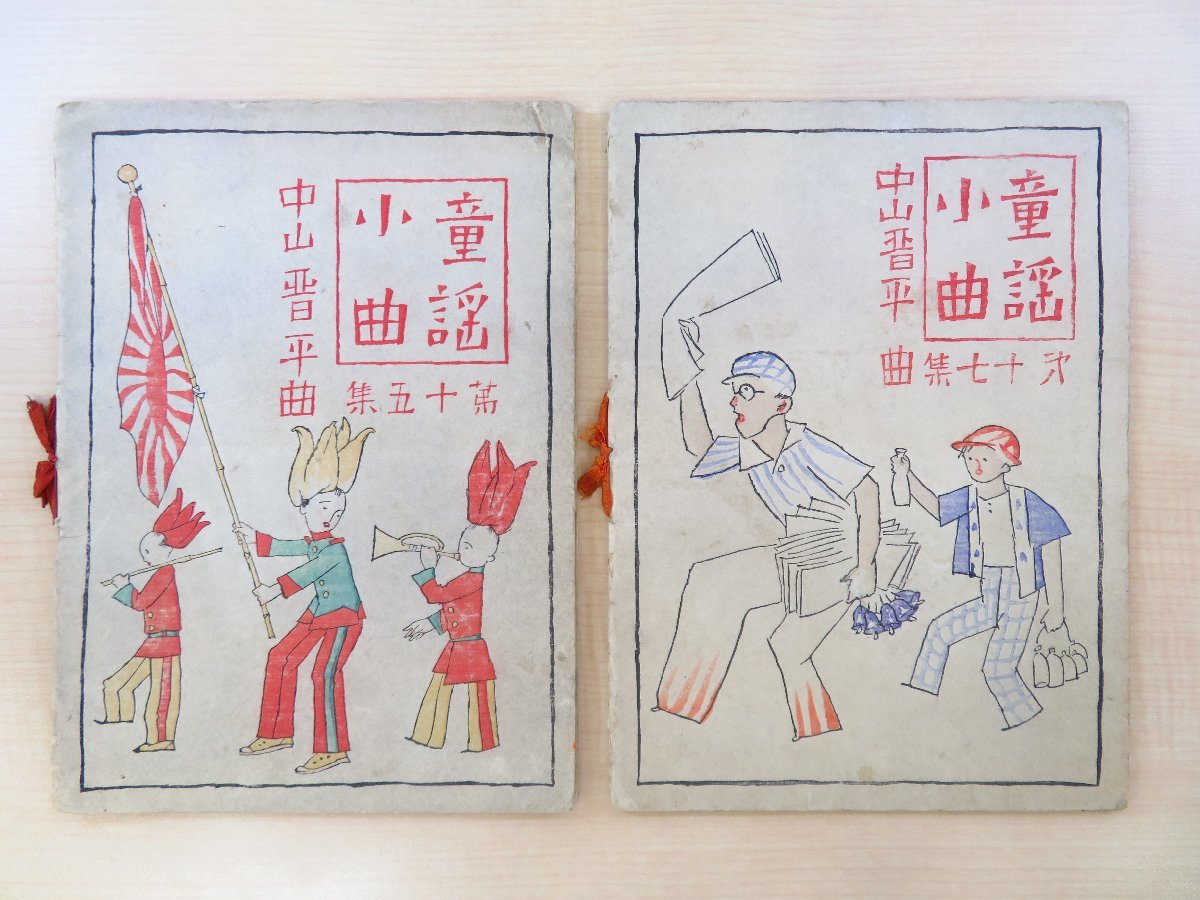 童謡
小曲
中山晋平曲
第十五集
童謡
小曲
中山晋平曲
第十七集